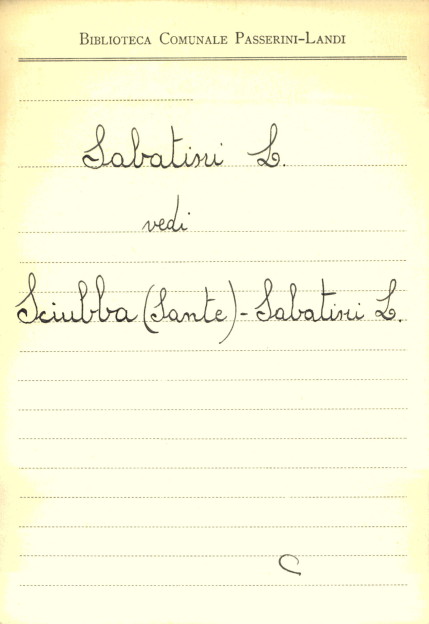 Biblioteca Comunale Passerini-Landi
Sabatini L.
vedi
Sciubba (Sante) - Sabatini L.
C